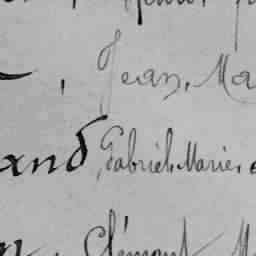 Jean, Ma
and, Gabriel, Marie,
Clément